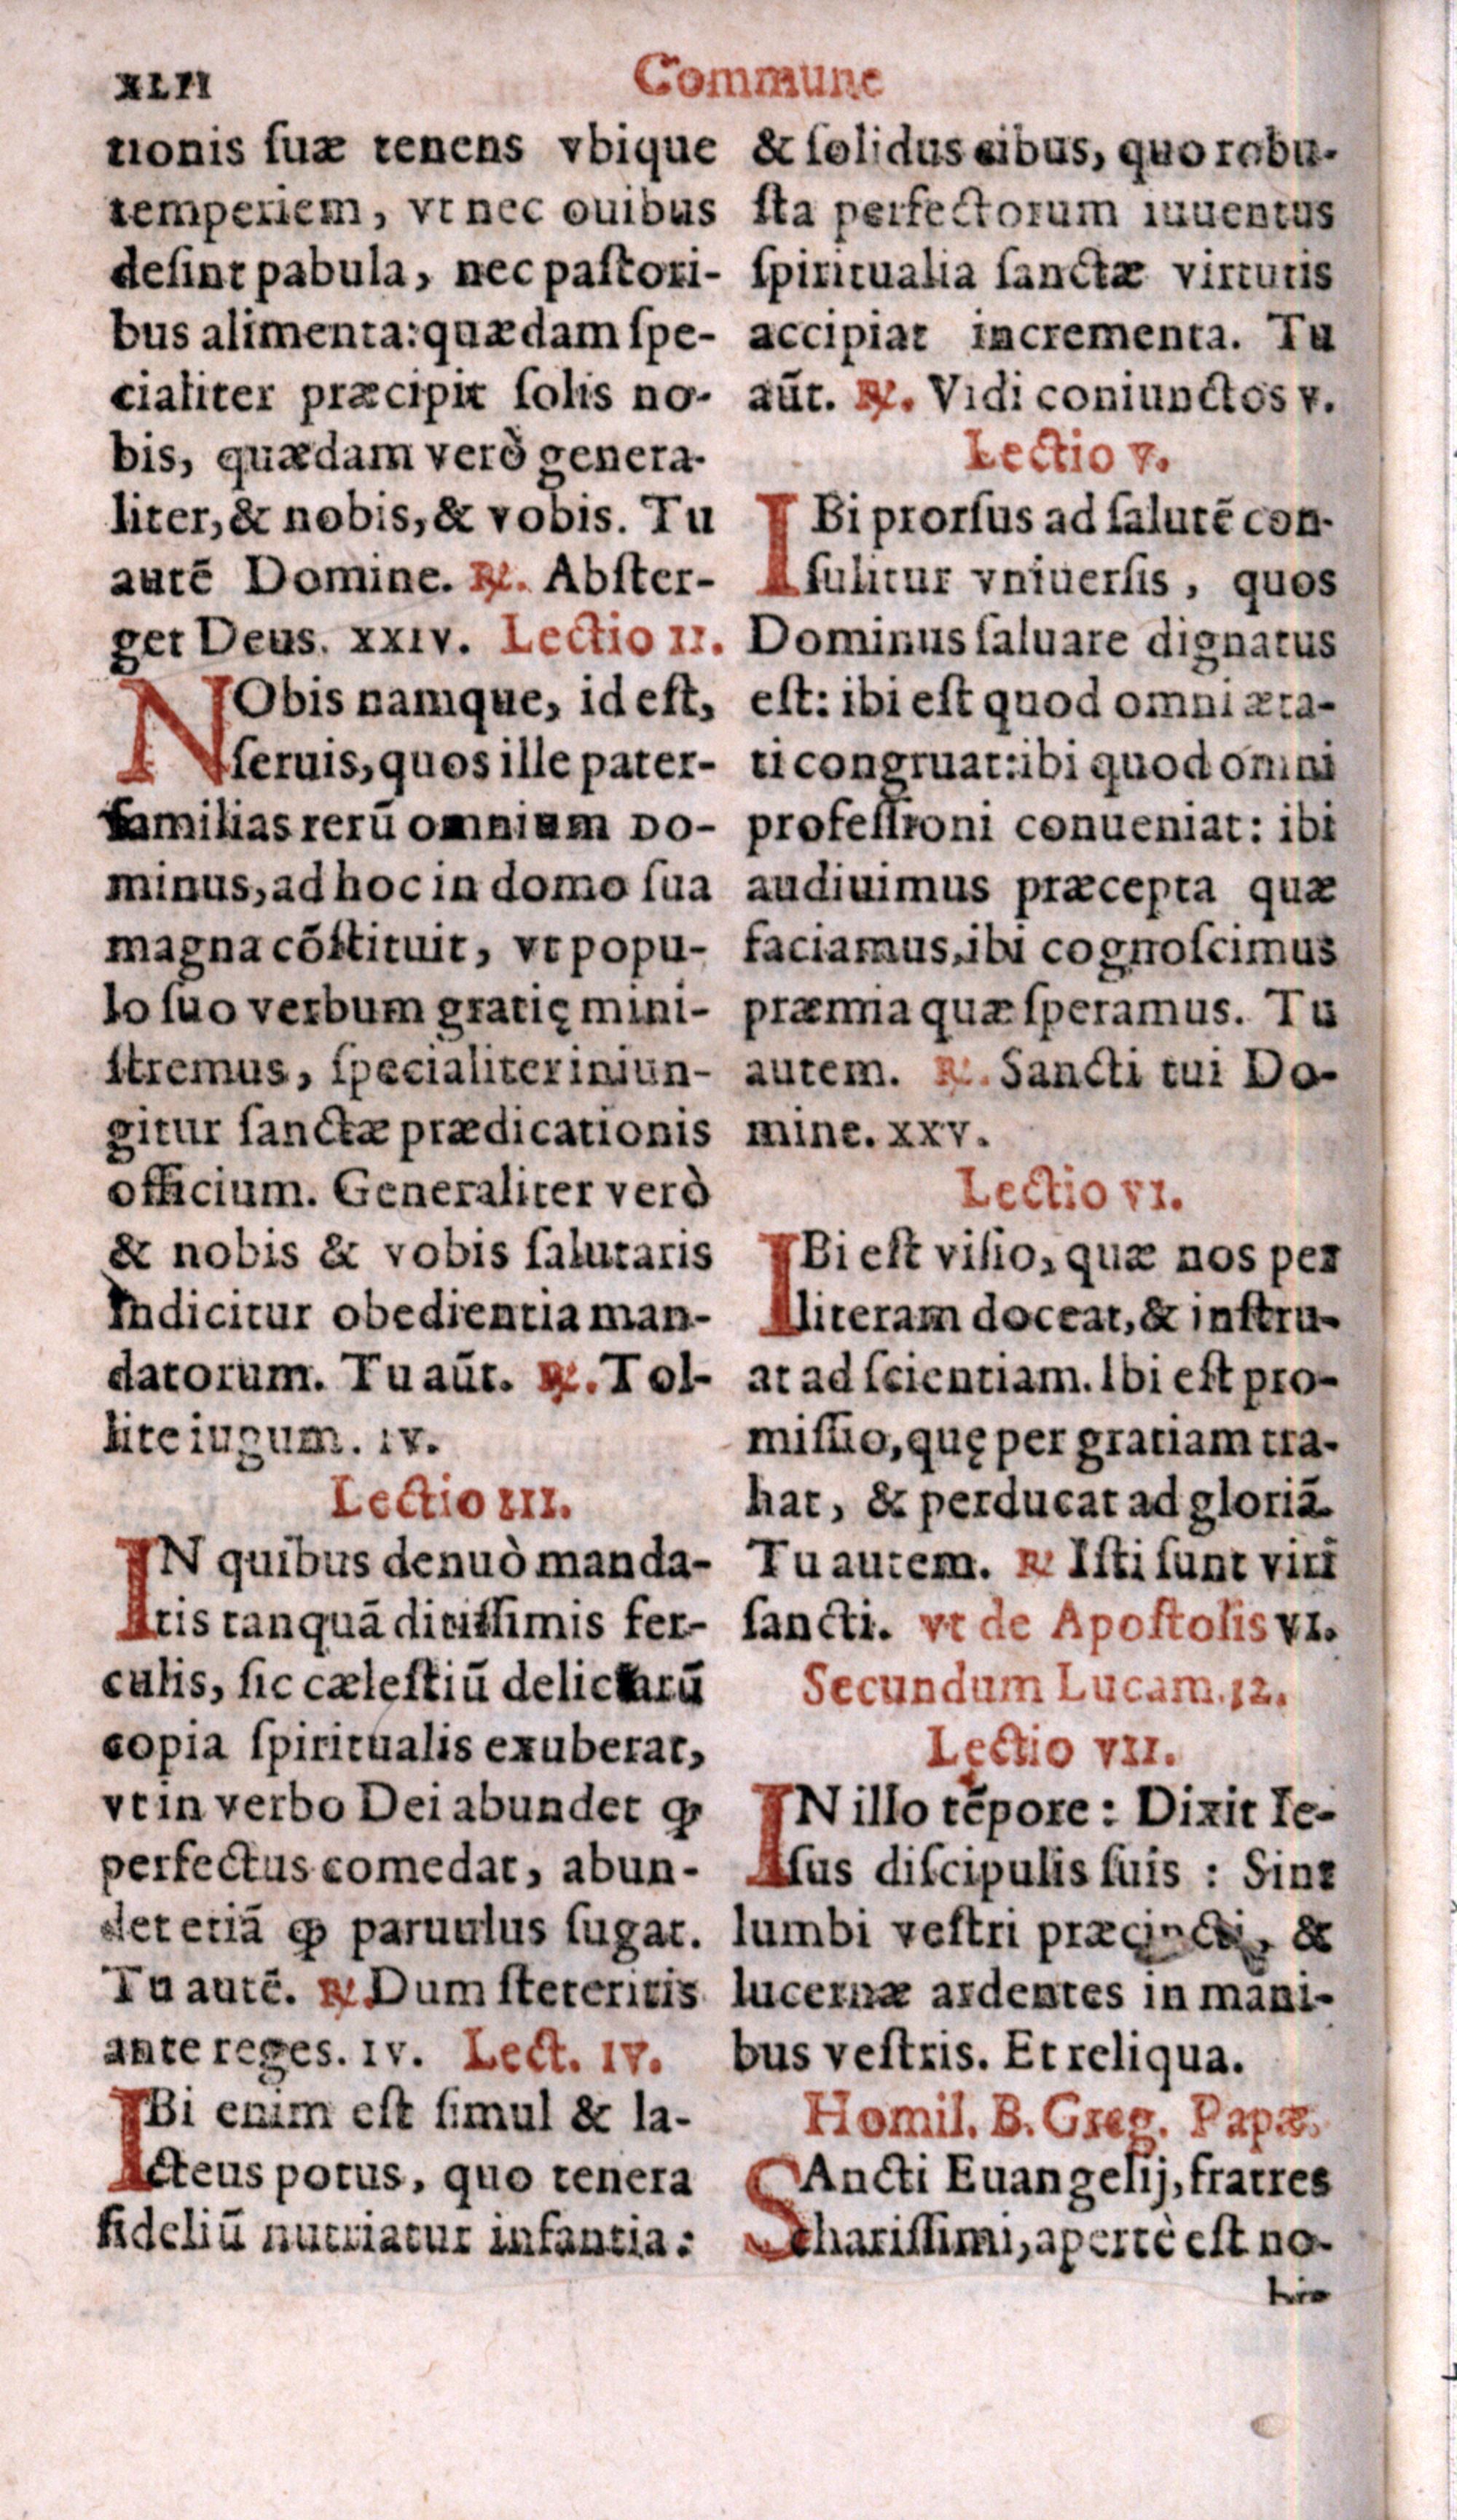 XLII
Commune
tionis ſuæ tenens vbique
temperiem, vt nec ouibus
deſint pabula, nec paſtori-
bus alimenta: quædam ſpe-
cialiter præcipit ſolis no-
bis, quædam verò genera-
liter, & nobis, & vobis. Tu
autē Domine. ℟. Abſter-
get Deus. XXIV. Lectio II.
NObis namque, id eſt,
ſeruis, quos ille pater-
familias rerū omnium DO-
minus, ad hoc in domo ſua
magna cōſtituit, vt popu-
lo ſuo verbum gratię mini-
ſtremus, ſpecialiter iniun-
gitur ſanctæ prædicationis
officium. Generaliter verò
& nobis & vobis ſalutaris
indicitur obedientia man-
datorum. Tu aūt. ℟. Tol-
lite iugum. IV.
Lectio III.
IN quibus denuò manda-
tis tanquā ditiſſimis fer-
culis, ſic cæleſtiū deliciarū
copia ſpiritualis exuberat,
vt in verbo Dei abundet ꝙ
perfectus comedat, abun-
det etiā ꝙ paruulus ſugat.
Tu autē. ℟. Dum ſteteritis
ante reges. IV. Lect. IV.
IBi enim eſt ſimul & la-
cteus potus, quo tenera
fideliū nutriatur infantia:
& ſolidus cibus, quo robu-
ſta perfectorum iuuentus
ſpiritualia ſanctæ virtutis
accipiat incrementa. Tu
aūt. ℟. Vidi coniunctos V.
Lectio V.
IBi prorſus ad ſalutē con-
ſulitur vniuerſis, quos
Dominus ſaluare dignatus
eſt: ibi eſt quod omni æta-
ti congruat: ibi quod omni
profeſſioni conueniat: ibi
audiuimus præcepta quæ
faciamus, ibi cognoſcimus
præmia quæ ſperamus. Tu
autem. ℟. Sancti tui Do-
mine. XXV.
Lectio VI.
IBi eſt viſio, quæ nos per
literam doceat, & inſtru-
at ad ſcientiam. Ibi eſt pro-
miſſio, quę per gratiam tra-
hat, & perducat ad gloriā.
Tu autem. ℟ Iſti ſunt viri
ſancti. vt de Apoſtolis VI.
Secundum Lucam. 12.
Lectio VII.
IN illo tēpore: Dixit Ie-
ſus diſcipulis ſuis: Sint
lumbi veſtri præcincti, &
lucernæ ardentes in mani-
bus veſtris. Et reliqua.
Homil. B. Greg. Papæ.
SAncti Euangelij, fratres
chariſſimi, apertè eſt no-
bis